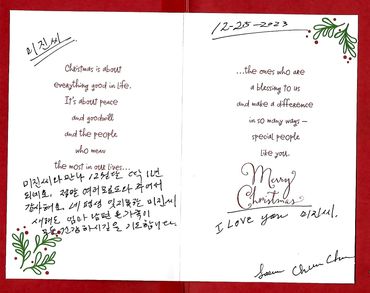 미진씨
Christmas is about
everything good in life.
It's about peace
and goodwill
and the people
who mean
the most in our lives...
미진씨와 만나 12월달 딱 1년
되네요. 정말 여러모로 도와 주어서
감사해요. 내 평생 잊지못할 미진씨
새해도 엄마 남편 온가족이
모두 건강하시길을 기도합니다.
12-25-2023
...the ones who are
a blessing to us
and make a difference
in so many ways—
special people
like you.
Merry
Christmas
I Love you 미진씨.
Chun